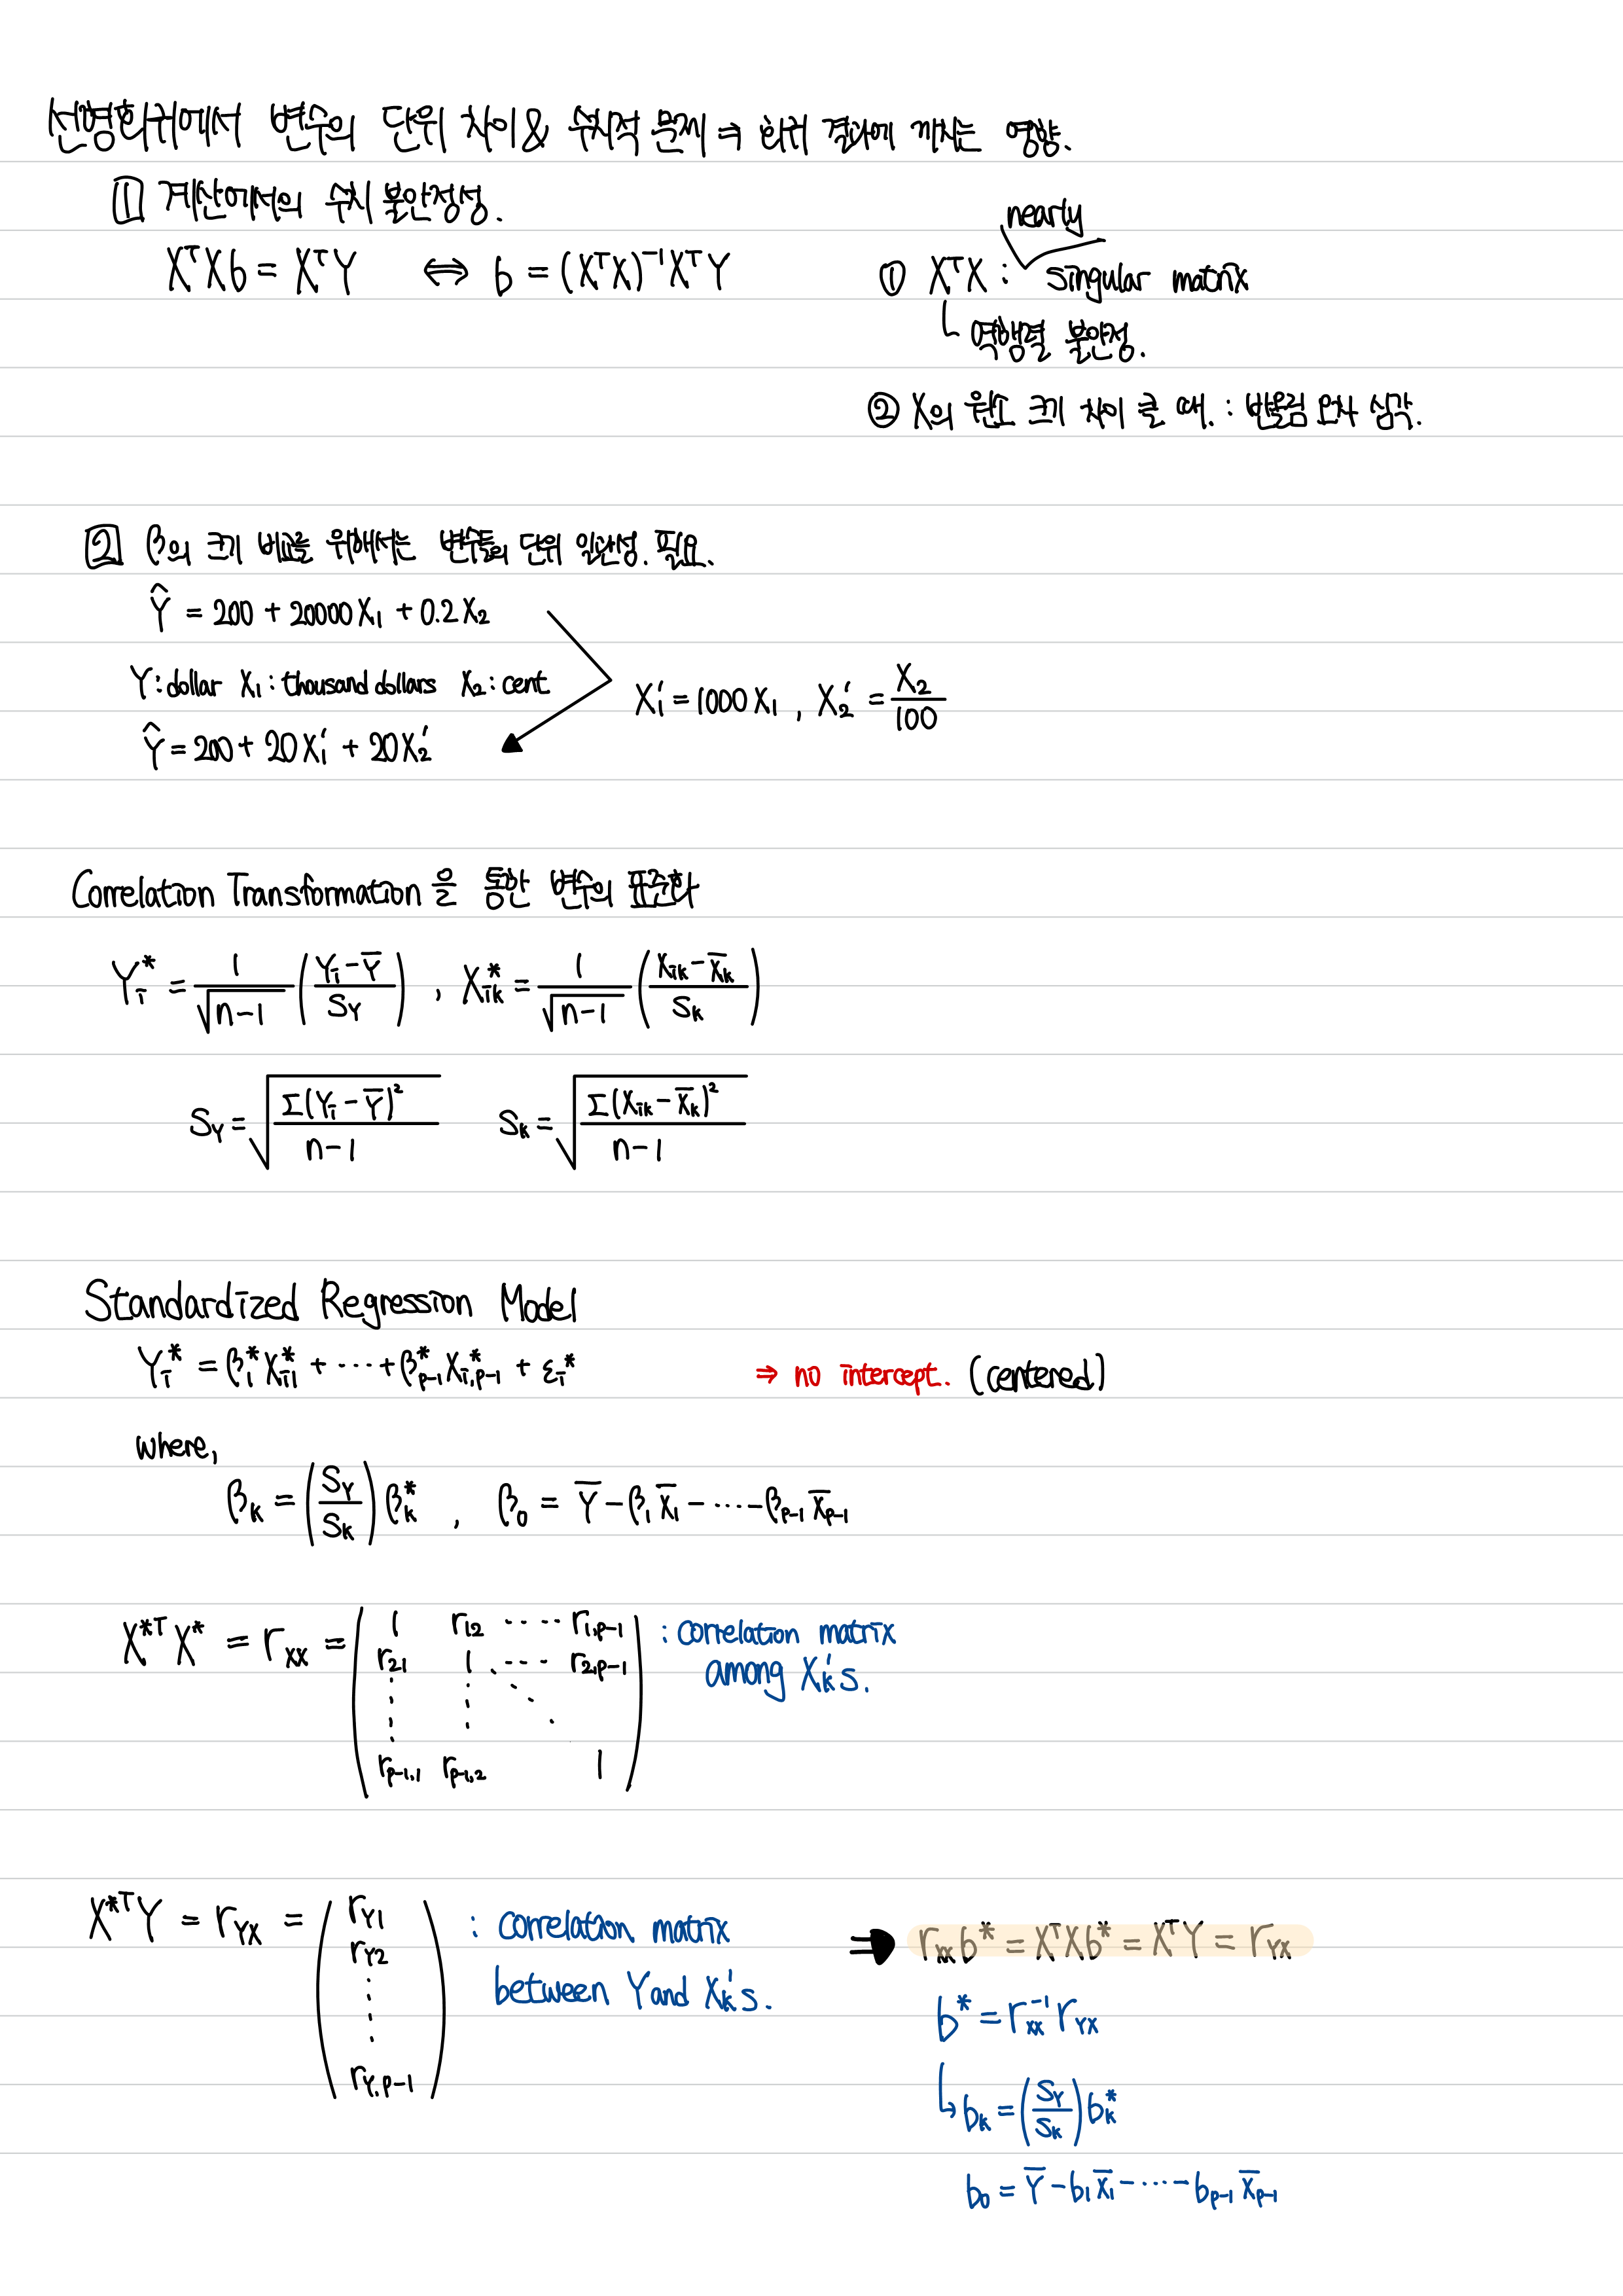 선형회귀에서 변수의 단위 차이 & 수치적 문제 ⇒ 회귀 결과에 미치는 영향.
1 계산에서의 수치 불안정성.
nearly
XᵀXb = XᵀY ⇔ b = (XᵀX)⁻¹XᵀY ① XᵀX : singular matrix
역행렬 불안정.
② X의 원소 크기 차이 클 때. : 반올림 오차 심각.
2 β의 크기 비교를 위해서는 변수들의 단위 일관성. 필요.
Ŷ = 200 + 20000X₁ + 0.2X₂
Y : dollar X₁ : thousand dollars X₂ : cent
X₁′ = 1000X₁ , X₂′ = X₂/100
Ŷ = 200 + 20X₁′ + 20X₂′
Correlation Transformation 을 통한 변수의 표준화
Yᵢ* = 1/√(n-1) ((Yᵢ - Ȳ)/S_Y) , Xᵢₖ* = 1/√(n-1) ((Xᵢₖ - X̄ₖ)/Sₖ)
S_Y = √(Σ(Yᵢ - Ȳ)²/(n-1)) Sₖ = √(Σ(Xᵢₖ - X̄ₖ)²/(n-1))
Standardized Regression Model
Yᵢ* = β₁*Xᵢ₁* + ····· + β*_{p-1}X*_{i,p-1} + εᵢ* ⇒ no intercept. (centered)
where,
βₖ = (S_Y/Sₖ) βₖ* , β₀ = Ȳ - β₁X̄₁ - ···· - β_{p-1}X̄_{p-1}
X*ᵀX* = r_XX = ( 1 r₁₂ ····· r_{1,p-1} : Correlation matrix
r₂₁ 1 ····· r_{2,p-1} among Xₖ's.
⋮ ⋮ ⋱
r_{p-1,1} r_{p-1,2} 1 )
X*ᵀY = r_YX = ( r_Y1 : Correlation matrix
r_Y2
⋮ between Y and Xₖ's.
r_{Y,p-1} )
⇒ r_XX b* = XᵀXb* = XᵀY = r_YX
b* = r_XX⁻¹ r_YX
↳ bₖ = (S_Y/Sₖ) bₖ*
b₀ = Ȳ - b₁X̄₁ - ····· - b_{p-1}X̄_{p-1}